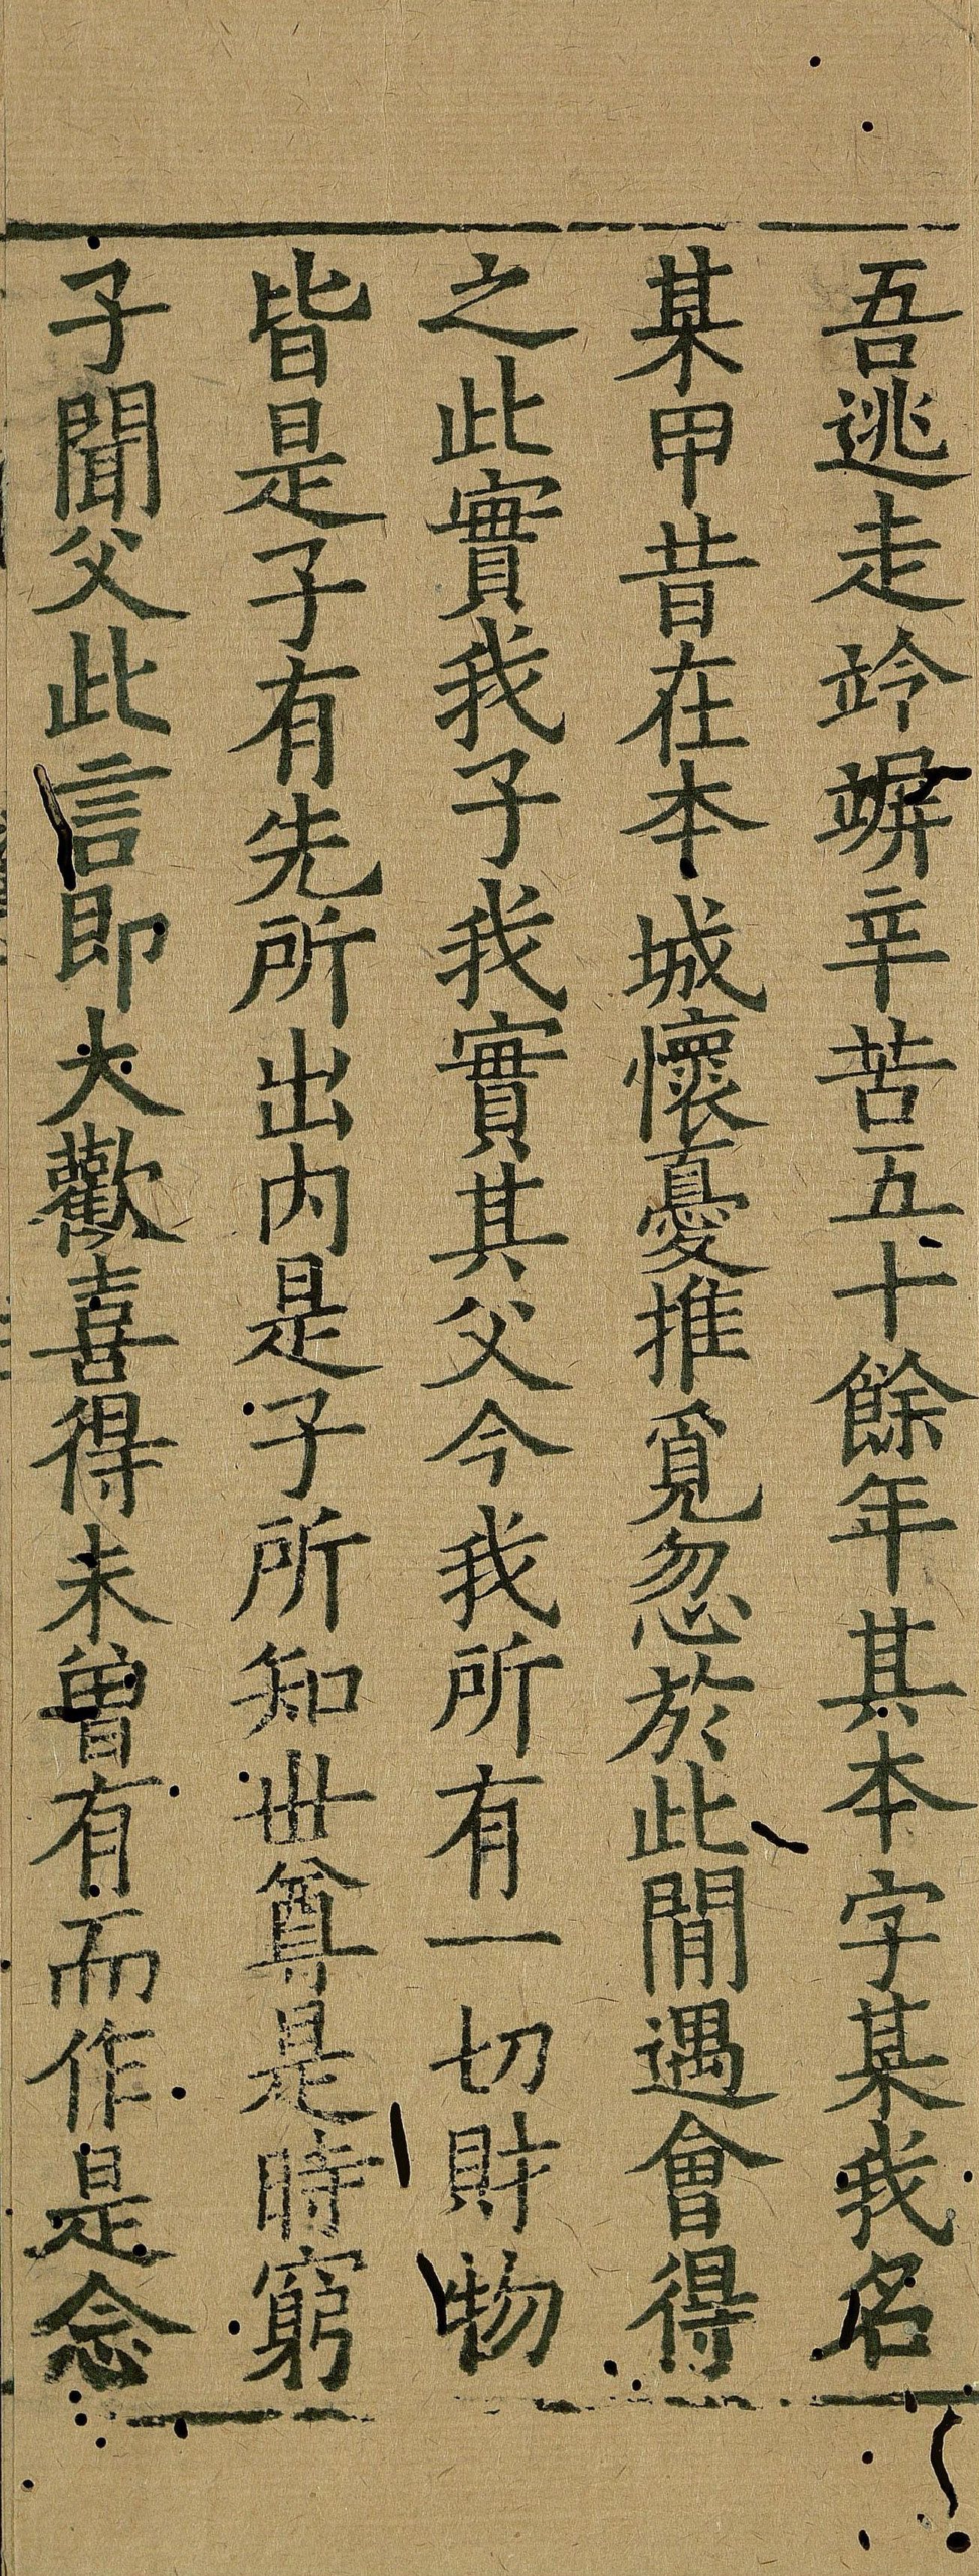 吾逃走竛竮辛苦五十餘年其本字某我名
某甲昔在本城懷憂推覓忽於此間遇會得
之此實我子我實其父今我所有一切財物
皆是子有先所出内是子所知世尊是時窮
子聞父此言即大歡喜得未曾有而作是念